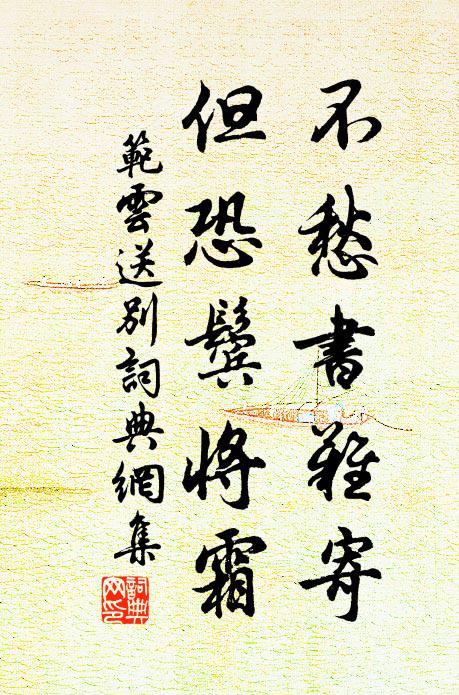 不愁書難寄
但恐鬢將霜
範雲送別詞典網集
詞典
网印